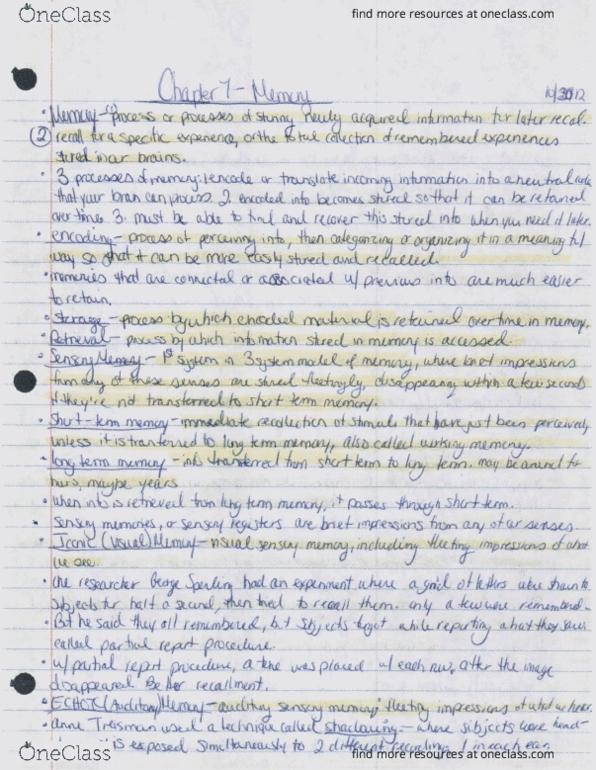 OneClass
find more resources at oneclass.com
Chapter 7 - Memory
10/30/12
• Memory - ① process or processes of storing newly acquired information for later recal.
② recall for a specific experience, or the total collection of remembered experiences
stored in our brains.
• 3 processes of memory: 1 encode or translate incoming information into a neutral code
that your brain can process 2. encoded info becomes stored so that it can be retained
over time 3. must be able to find and recover this stored info when you need it later.
• encoding - process of percieving info, then categorizing or organizing it in a meaningful
way so that it can be more easily stored and recalled.
• memories that are connected or associated w/ previous info are much easier
to retain.
• Storage - process by which encoded material is retained over time in memory.
• Retrieval - process by which information stored in memory is accessed.
• Sensory Memory - 1st system in 3 system model of memory, where brief impressions
from any of these senses are stored fleetingly, disappearing within a few seconds
if they're not transferred to short term memory.
• Short-term memory - immediate recollection of stimuli that have just been perceived,
unless it is tranferred to long term memory, also called working memory.
• long term memory - info transferred from short term to long term. may be around for
hours, maybe years
• when info is retrieved from long term memory, it passes through short term.
• sensory memories, or sensory registers are brief impressions from any of our senses.
• Iconic (Visual) Memory - visual sensory memory, including fleeting impressions of what
we see.
• One researcher George Sperling had an experiment where a grid of letters were shown to
subjects for half a second, then tried to recall them. only a few were remembered.
• But he said they all remembered, but subjects forgot while reporting what they saw.
called partial report procedure.
• w/ partial report procedure, a tone was placed w/ each row, after the image
disappeared. Better recallment.
• ECHOIC (Auditory) Memory - auditory sensory memory, fleeting impressions of what we hear.
• Anne Treisman used a technique called shadowing - where subjects wore head-
is exposed simultaneously to 2 different recordings 1 in each ear.
OneClass
find more resources at oneclass.com